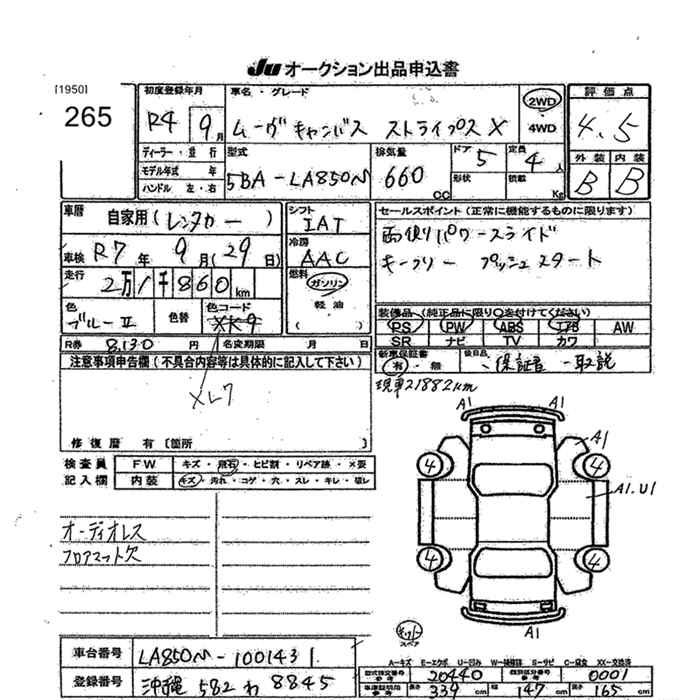 Ju オークション出品申込書
[1950]
265
初度登録年月 車名・グレード 評価点
R4 9月 ムーヴキャンバス ストライプス X 2WD 4WD 4.5
ディーラー・並行 型式 排気量 ドア 定員 外装 内装
モデル年式 年 5BA-LA850M 660 CC 5 4人 B B
ハンドル 左・右 形状 積載 Kg
車歴 自家用(レンタカー) シフト IAT セールスポイント(正常に機能するものに限ります)
車検 R7年9月(29日) 冷房 AAC 両側パワースライド
走行 2万1千860km 燃料 ガソリン キーフリー プッシュスタート
色 ブルーII 色替 色コード XK9 軽油 ( )
装備品(純正品に限り○を付けてください)
PS PW ABS エアB AW
SR ナビ TV カワ
R券 8,130円 名変期限 月 日
新車保証書 有・無 後日品 保証書 取説
注意事項申告欄(不具合内容等は具体的に記入して下さい)
現車21882km
XL7
修復歴 有[箇所 ]
検査員 FW キズ・飛石・ヒビ割・リペア跡・X要
記入欄 内装 キズ・汚れ・コゲ・穴・スレ・キレ・破レ
A1 A1
A1
4 4
A1.U1
4 4
A1
オーディオレス
フロアマット欠
キット
スペア
車台番号 LA850M-1001431
登録番号 沖縄 582 わ 8845
A-キズ E-エクボ U-凹み W-補修跡 S-サビ C-腐食 XX-交換済
型式指定番号 参考 20440 類別区分番号 参考 0001
車庫証明用 参考 長さ 339cm 幅 147cm 高さ 165cm